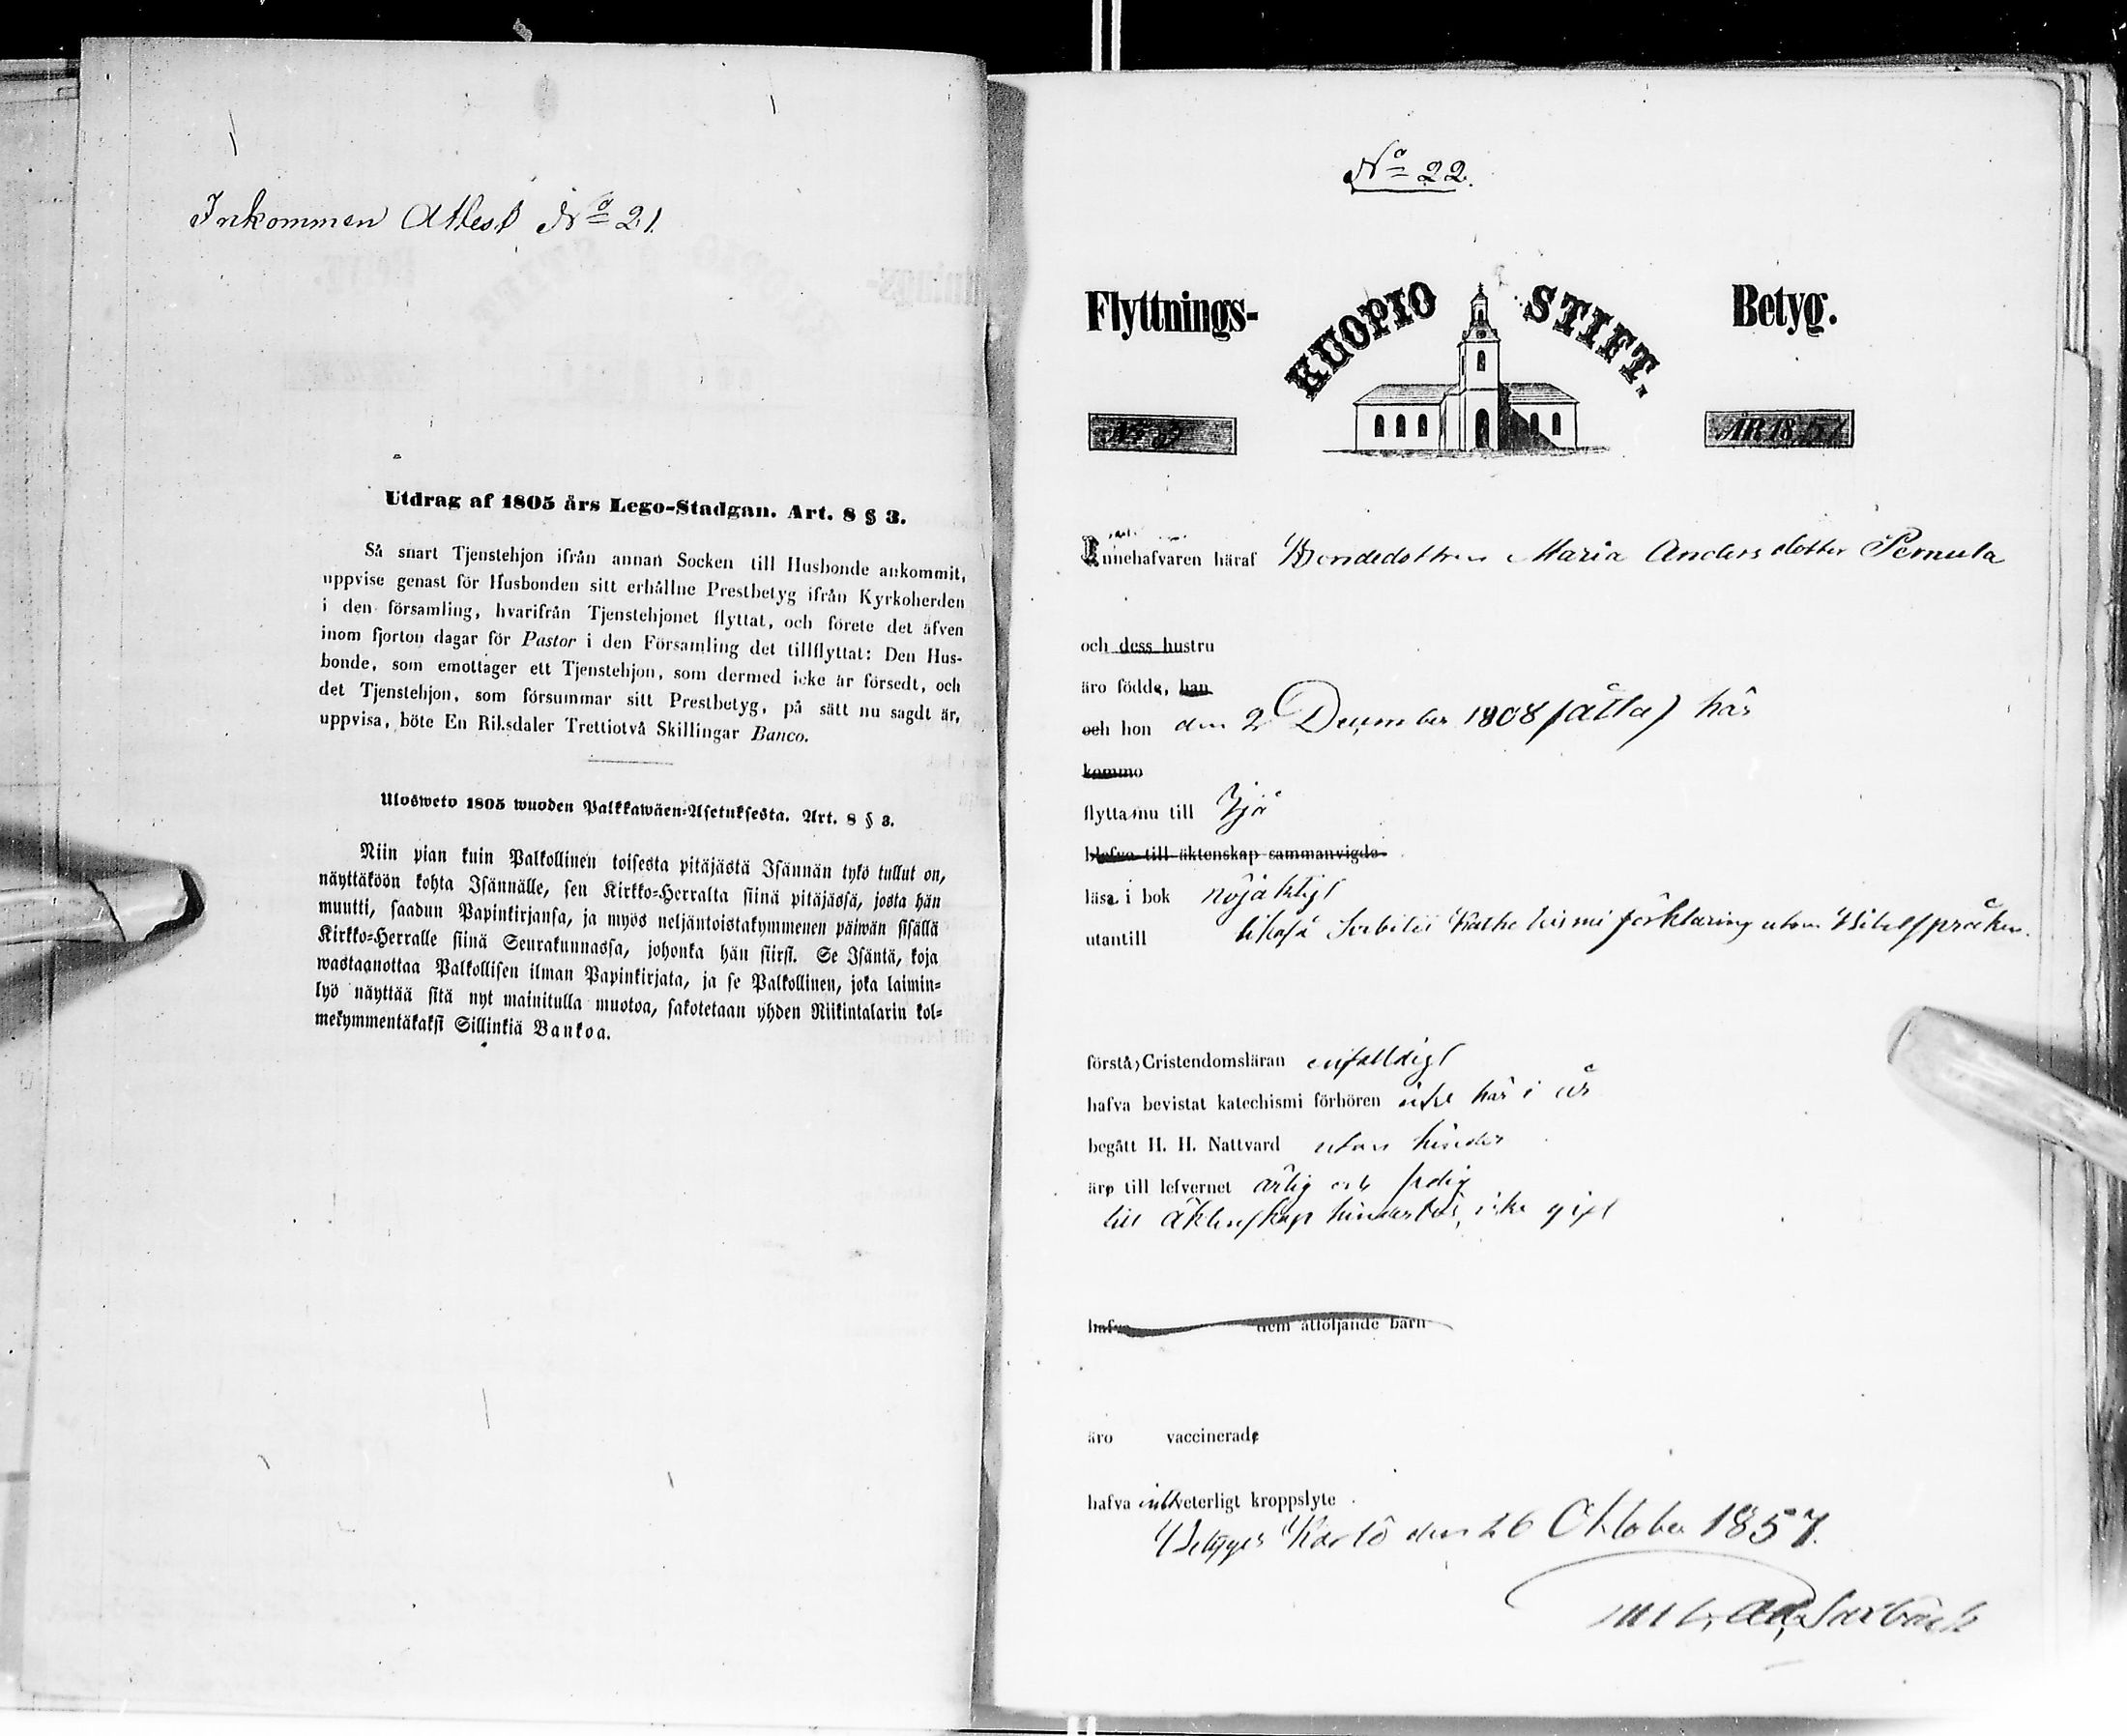 Inkommen Attest No 21.
Utdrag af 1805 års Lego-Stadgan. Art. 8 § 3.
Så snart Tjenstehjon ifrån annan Socken till Husbonde ankommit,
uppvise genast för Husbonden sitt erhållne Prestbetyg ifrån Kyrkoherden
i den församling, hvarifrån Tjenstehjonet flyttat, och förete det äfven
inom fjorton dagar för Pastor i den Församling det tillflyttat: Den Hus-
bonde, som emottager ett Tjenstehjon, som dermed icke är försedt, och
det Tjenstehjon, som försummar sitt Prestbetyg, på sätt nu sagdt är,
uppvisa, böte En Riksdaler Trettiotvå Skillingar Banco.
Ulosweto 1805 wuoden Palkkawäen-Asetuksesta. Art. 8 § 3.
Niin pian kuin Palkollinen toisesta pitäjästä Isännän tykö tullut on,
näyttäköön kohta Isännälle, sen Kirkko-Herralta siinä pitäjässä, josta hän
muutti, saadun Papinkirjansa, ja myös neljäntoistakymmenen päiwän sisällä
Kirkko-Herralle siinä Seurakunnassa, johonka hän siirsi. Se Isäntä, koja
wastaanottaa Palkollisen ilman Papinkirjata, ja se Palkollinen, joka laimin-
lyö näyttää sitä nyt mainitulla muotoa, sakotetaan yhden Riikintalarin kol-
mekymmentäkaksi Sillinkiä Bankoa.
No 22.
Flyttnings- KUOPIO STIFT. Betyg.
ÅR 1857
Innehafvaren häraf Bondedottren Maria Anders dotter Pernula
och dess hustru
äro födde, han
och hon den 2 December 1808 (åtta) här
komma
flytta nu till Ijå
hafva till äktenskap sammanvigde
läsa i bok nöjaktigt
utantill likaså Svebilii Kathekismi förklaring utom Bibelspråken.
förstå Cristendomsläran enfaldigt
hafva bevistat katechismi förhören icke här i år
begått H. H. Nattvard utan hinder
äro till lefvernet ärlig och fredig
till äktenskap hinderlös, icke gift
hafva dem åtföljande barn
äro vaccinerade
hafva intet veterligt kroppslyte
Betygas Karlö den 26 Oktober 1857.